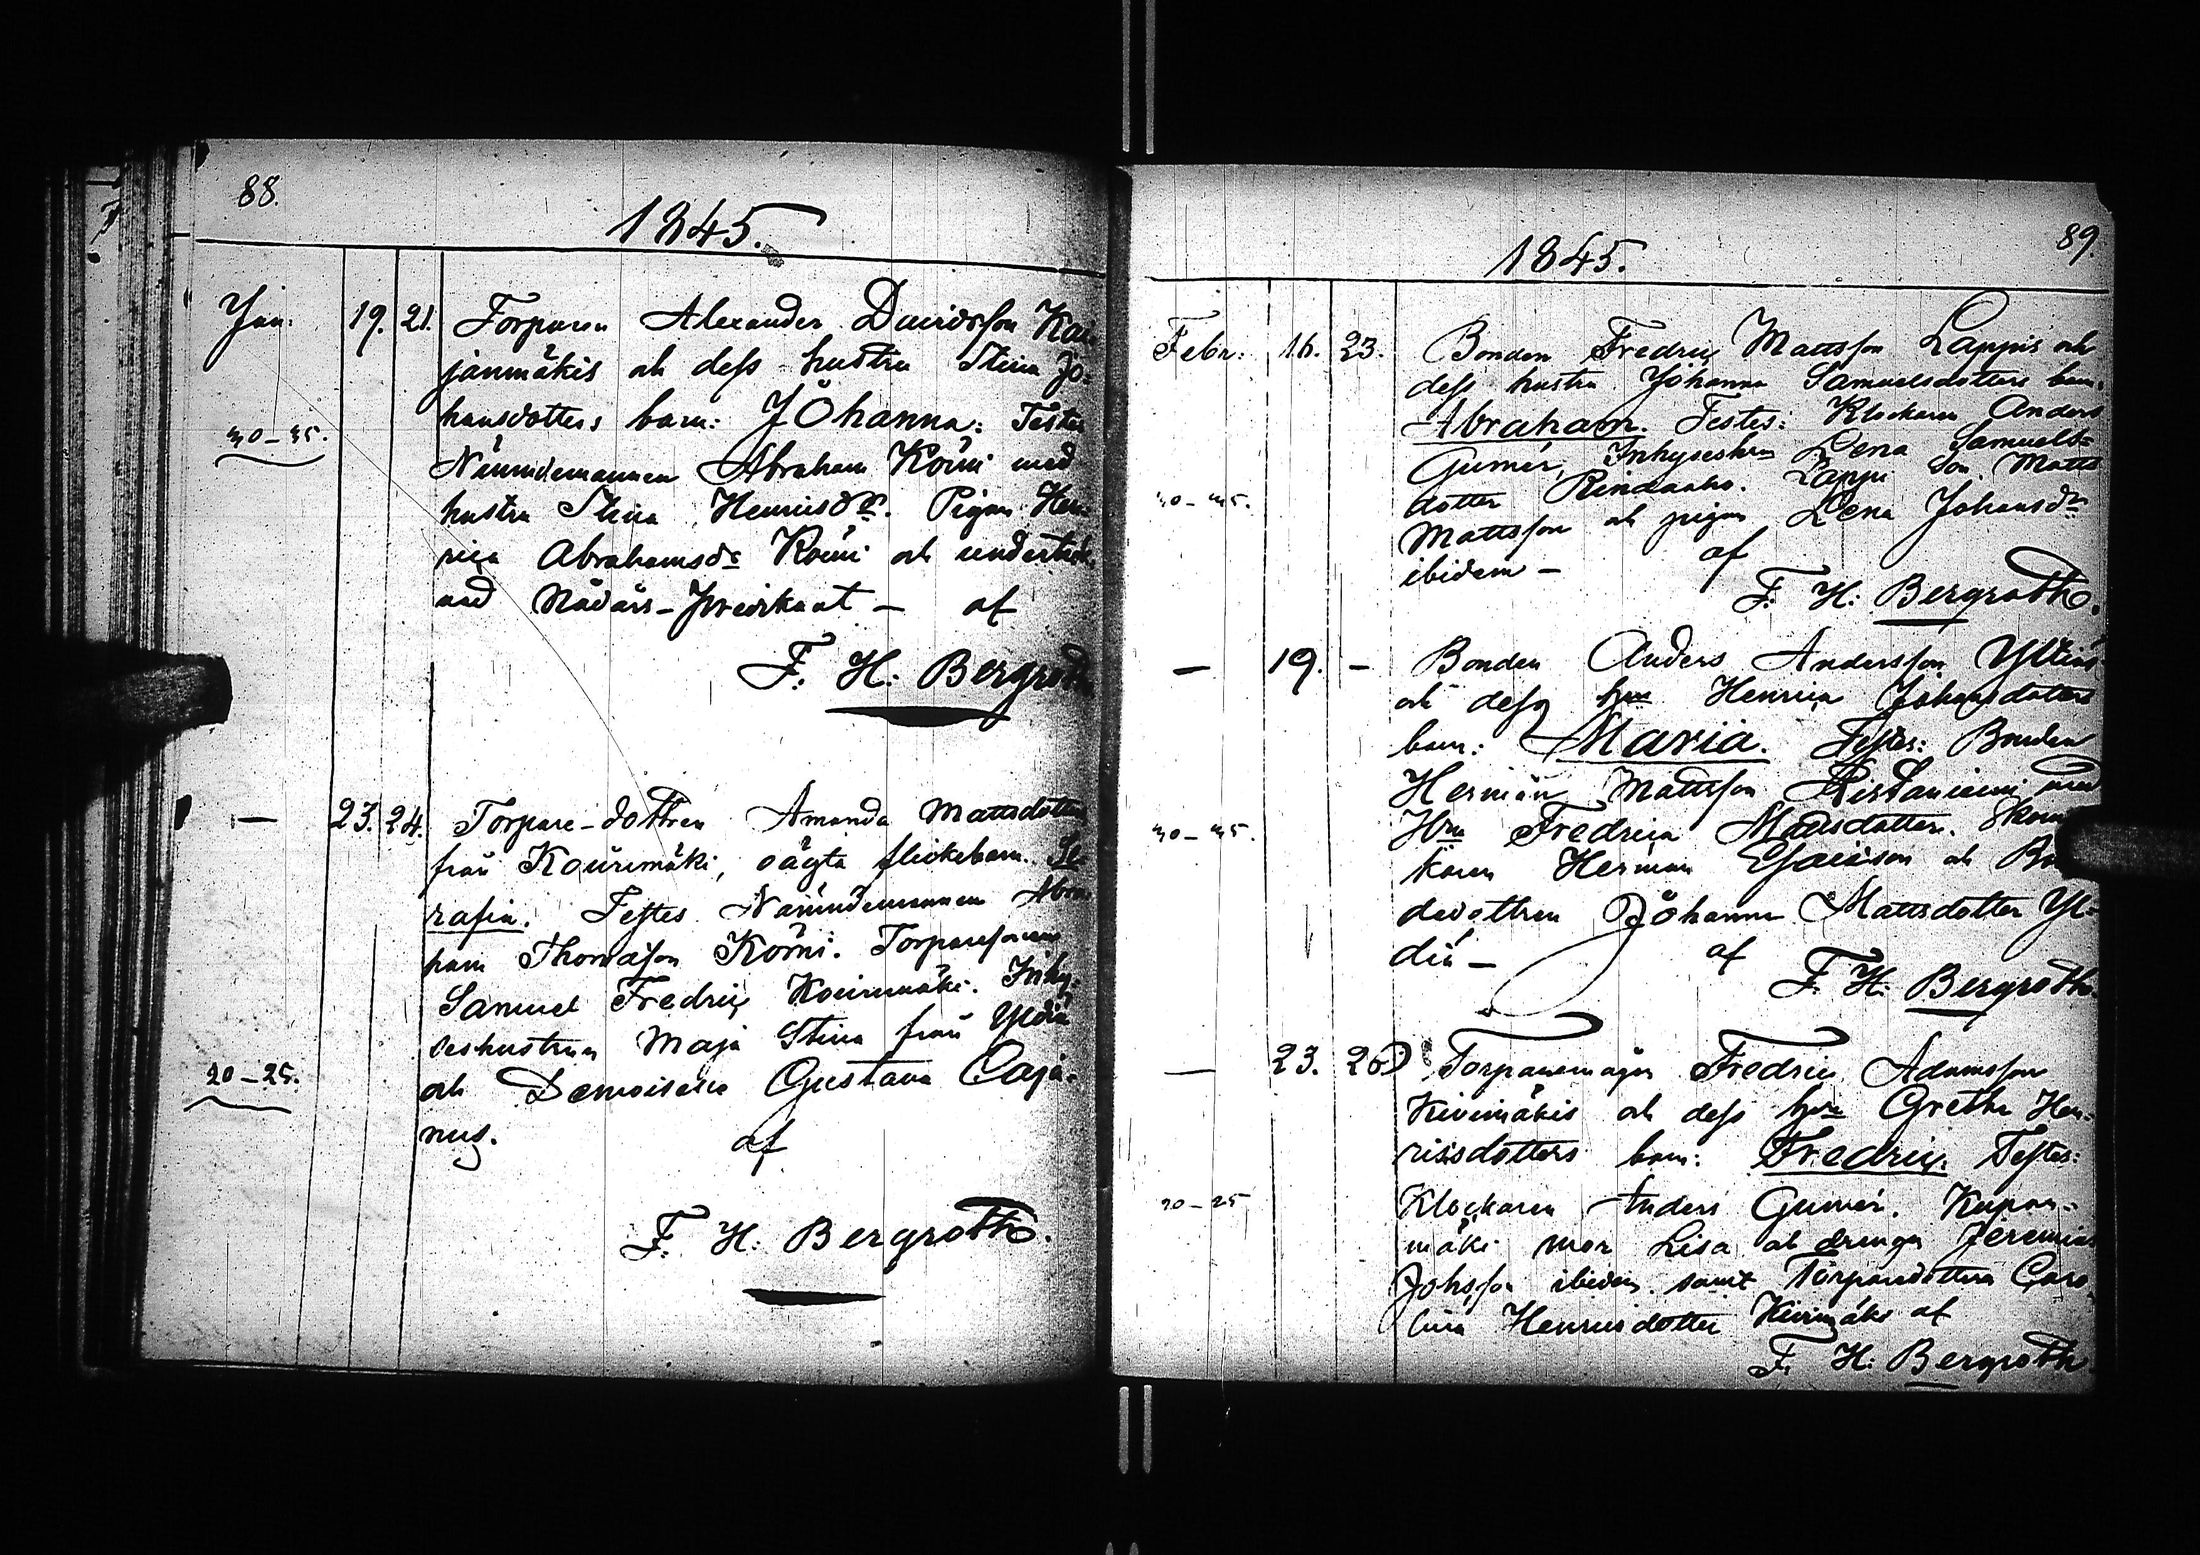 88.
1845.
Jan. 19. 21. Torparen Alexander Davidsson Kai
janmäkis och dess hustru Stina Jo=
hansdotters barn: Johanna: Testes
30–35.
Nämndemannen Abraham Koivu med
hustru Stina Henricsdr. Pigan Hen
rica Abrahamsdr Koivu och
nåd Nådårs-Predikant – af
F. H: Bergroth
— 23. 24. Torpare-dottren Amanda Mattsdotter
från Kouvimäki, oägta flickebarn. Se
rafia. Testes Nämndemannen Abra
ham Thomasson Koivu. Torparesonen
Samuel Fredric Koivumäki. Inhy=
seshustrun Maja Stina från Yliviä
20–25.
och Demoiselle Gustava Caja=
nus. af
F. H: Bergroth.
89.
1845.
Febr: 16. 23. Bonden Fredric Mattsson Lappis och
dess hustru Johanna Samuelsdotters barn.
Abraham. Testes: Klockaren Anders
Gumér, Inhyseshn Lena Samuels=
dotter Rindaaho. Lappi Son Matts
30–35.
Mattsson och pigan Lena Johansdr
ibidem – af
F. H: Bergroth.
— 19. – Bonden Anders Andersson
och dess hru Henrica Johansdotters
barn: Maria. Testes: Bonden
Herman Mattsson Ristaniemi med
30–35.
Hru Fredrica Mattsdotter.
karen Herman Esaiasson och
dedottren Johanna Mattsdotter Yl=
diä – af
F. H: Bergroth.
— 23. 26. Torparemågen Fredric Adamsson
Kivimäkis och dess hru Gretha Hen=
ricsdotters barn: Fredric. Testes:
20–25
Klockaren Anders Gumér. Kupar=
mäki mor Lisa och drengen Jeremias
Johsson ibidem samt Torparedottren Caro
lina Henricsdotter Kivimäki af
F. H: Bergroth